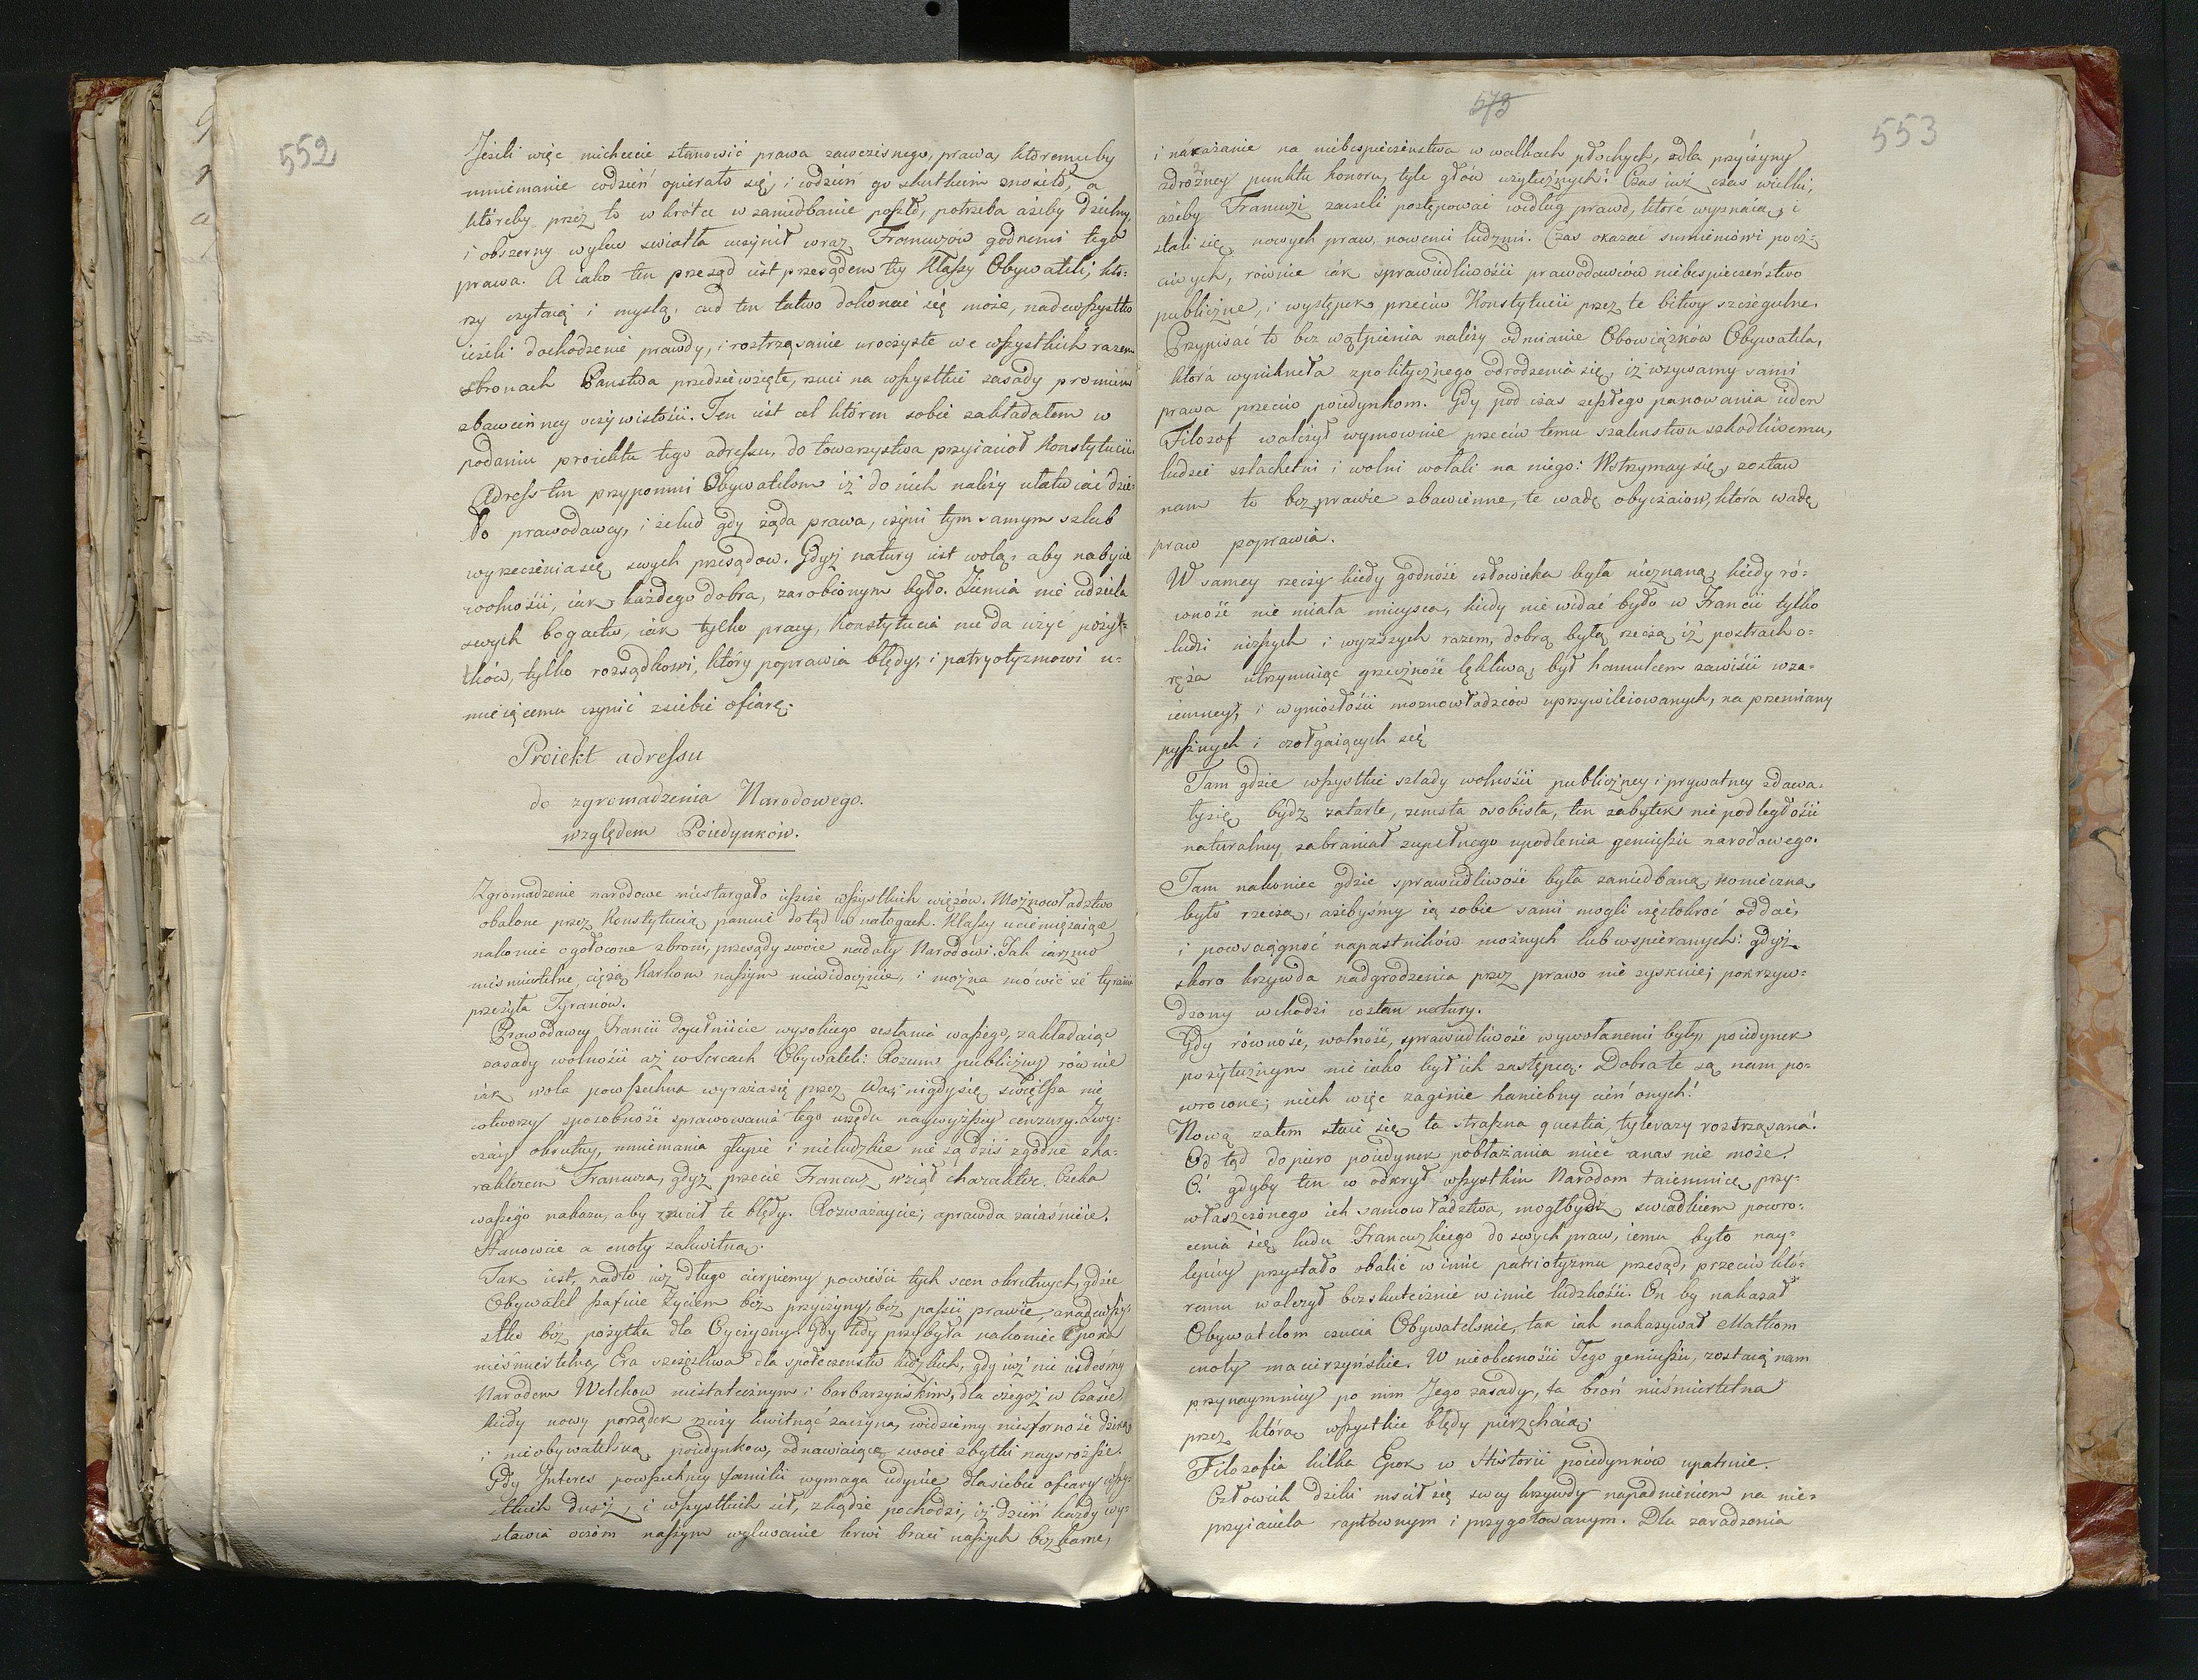 552
Jeżeli więc niechcecie stanowić prawa zawczesnego, prawa, któremuby
mniemanie codzień opierało się, i codzień go skutkiem znosiło, a
któreby przez to wkrótce w zaniedbanie poszło, potrzeba ażeby dzielny,
i obszerny wylew swiatła uczynił wraz Francuzów godnemi tego
prawa. A iako ten przesąd iest przesądem tey Klassy Obywateli, któ=
rzy czytaią i myslą: cud ten łatwo dokonać się może, nadewszystko
ieżeli dochodzenie prawdy, i rostrząsanie uroczyste we wszystkich razem
stronach Państwa przedsięwzięte, rzuci na wszystkie zasady promień
zbawienney oczywistości. Ten iest cel któren sobie zakładałem w
podaniu proiektu tego adressu, do towarzystwa przyiaciół Konstytucii.
Adress ten przypomni Obywatelom iż do nich należy ułatwiać dzie=
ło prawodawcy, i że lud gdy żąda prawa, czyni tym samym szlub
wyrzeczenia się swych przesądow. Gdyż natury iest wolą, aby nabycie
wolności, iak każdego dobra, zarobionym było. Ziemia nie udziela
swych bogactw, iak tylko pracy, Konstytucia nie da użyć pożyt=
ków, tylko rozsądkowi, który poprawia błędy, i patryotyzmowi u=
mieiącemu czynić z siebie ofiarę.
Proiekt adressu
do zgromadzenia Narodowego.
względem Poiedynków.
Zgromadzenie narodowe niestargało ieszcze wszystkich więzów. Możnowładztwo
obalone przez Konstytucią panuie dotąd w nałogach. Klassy uciemiężaiące
nakoniec ogołocone z broni, przesądy swoie nadały Narodowi. Jak iarzmo
nieśmiertelne, ciężą Karkom naszym niewidocznie, i można mówić że tyrania
przeżyła Tyranów.
Prawodawcy Francii dopełniicie wysokiego zesłania waszego, zakładaiąc
zasady wolności aż w Sercach Obywateli: Rozum publiczny równie
iak wola powszechna wyraża się przez Was nigdy się świętsza nie
otworzy sposobność sprawowania tego urzędu naywyższey cenzury. Zwy=
czaie okrutne, mniemania głupie i nieludzkie nie są dziś zgodne z ha=
rakterem Francuza, gdyż przecie Francuz wziął charakter. Czeka
waszego nakazu, aby zrzucił te błędy. Rozważaycie; a prawda zaiaśnieie.
Stanowcie a cnoty zakwitną.
Tak iest, nadto iuż długo cierpiemy powieści tych scen okrutnych, gdzie
Obywatel szafuie życiem bez przyczyny, bez passii prawie, a nadewszy=
stko bez pożytku dla Oyczyzny. Gdy tedy przybyła nakoniec Epoka
nieśmiertelna, Era szczęśliwa dla społeczeństw ludzkich, gdy iuż nie iesteśmy
Narodem Welchow niestatecznym i barbarzyńskim, dla czegoż w Czasie
kiedy nowy porządek rzeczy kwitnąć zaczyna, widziemy niesforność dziką
i nieobywatelską poiedynkow, odnawiaiącą swoie zbytki naysroższe.
Gdy Interes powszechney familii wymaga iedynie dla siebie ofiary wszy=
stkich dusz, i wszystkich sił, zkądże pochodzi, iż dzień każdy wy=
stawia oczóm naszym wylewanie krwi braci naszych bezkarne,
573
553
i narażanie na niebespieczeństwa w walkach płochych, z dla przyczyny
zdrożney punktu honoru, tyle głów użytecznych! Czas iuż czas wielki,
ażeby Francuzi zaczeli postępować według prawd, które wyznaią, i
stali się nowych praw, nowemi ludźmi. Czas okazać sumieniowi pocz=
ciwych, równie iák sprawiedliwości prawodawców niebespieczeństwo
publiczne, i występek przeciw Konstytucii przez te bitwy szczegulne.
Przypisać to bez wątpienia należy odmianie Obowiązków Obywatela,
która wyniknęła z politycznego odrodzenia się, iż wzywamy sami
prawa przeciw poiedynkom. Gdy pod czas zeszłego panowania ieden
Filozof walczył wymownie przeciw temu szaleństwu szkodliwemu,
ludzie szlachetni i wolni wołali na niego: Wstrzymay się, zostaw
nam to bezprawie zbawienne, te wadę obyczaiow, która wadę
praw poprawia.
W samey rzeczy kiedy godność człowieka była nieznaną, kiedy ró=
wność nie miała mieysca, kiedy nie widać było w Francii tylko
ludzi niższych i wyższych razem, dobrą było rzeczą iż postrach o=
ręża utrzymuiąc grzeczność lękliwą, był hamulcem zawiści wza=
iemney, i wyniosłości moznowładzców uprzywileiowanych, na przemiany
pysznych i czołgaiących się
Tam gdzie wszystkie szlady wolności publiczney i prywatney zdawa=
ły się bydz zatarte, zemsta osobista, ten zabytek nie podległości
naturalney, zabraniał zupełnego upodlenia geniuszu narodowego.
Tam nakoniec gdzie sprawiedliwość była zaniedbaną, konieczna
było rzeczą, ażebyśmy ią sobie sami mogli częstokroć oddać,
i powsciągnąć napastników możnych lub wspieranych: gdyż
skoro krzywda nadgrodzenia przez prawo nie zyskuie; pokrzyw=
dzony wchodzi w stan natury.
Gdy równość, wolność, sprawiedliwość wywołanemi były, poiedynek
pożytecznym nie iako był ich zastępcą. Dobra te są nam po=
wrócone; niech więc zaginie haniebny cień onych!
Nową zatem staie się ta straszna questia, tylerazy rozstrząsana!
Od tąd dopiero poiedynek pobłażania mieć a nas nie może.
O! gdyby ten co odkrył wszystkim Narodom taiemnicę przy=
właszczonego ich samowładztwa, mogłbydz swiadkiem powro=
cenia się ludu Francuzkiego do swych praw, iemu było nay=
lepiey przystało obalić w imie patriotyzmu przesąd, przeciw któ=
remu walczył bezskutecznie w imie ludzkości. On by nakazał
Obywatelom czucia Obywatelskie, tak iak nakazywał Matkom
cnoty macierzyńskie. W nieobecności Tego geniuszu, zostaią nam
przynaymniey po nim Jego zasady, ta broń nieśmiertelna
przez którą wszystkie błędy pierzchaią.
Filozofia kilka Epok w Historii poiedynków upatruie.
Człowiek dziki mscił się swey krzywdy napadnieniem na nie=
przyiaciela raptownym i przygotowanym. Dla zaradzenia